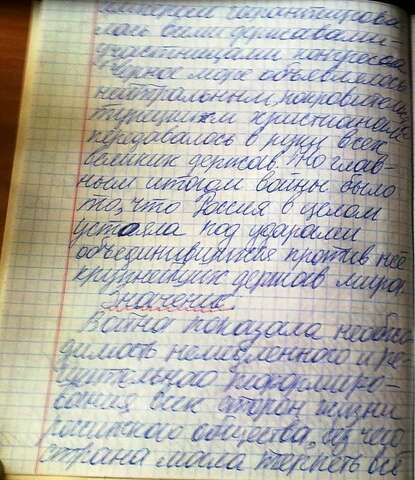 империи гарантирова-
лась семи державами -
участницами конгресса.
Черное море объявлялось
нейтральным, покровитель
турецким христианам
передавалось в руки всех
великих держав. Но глав-
ным итогом войны было
то, что Россия в целом
устояла под ударами
объединившихся против неё
крупнейших держав мира.
Значение:
Война показала необхо-
димость немедленного и ре-
шительного реформиро-
вания всех сторон жизни
российского общества, без чего
страна могла терпеть всё